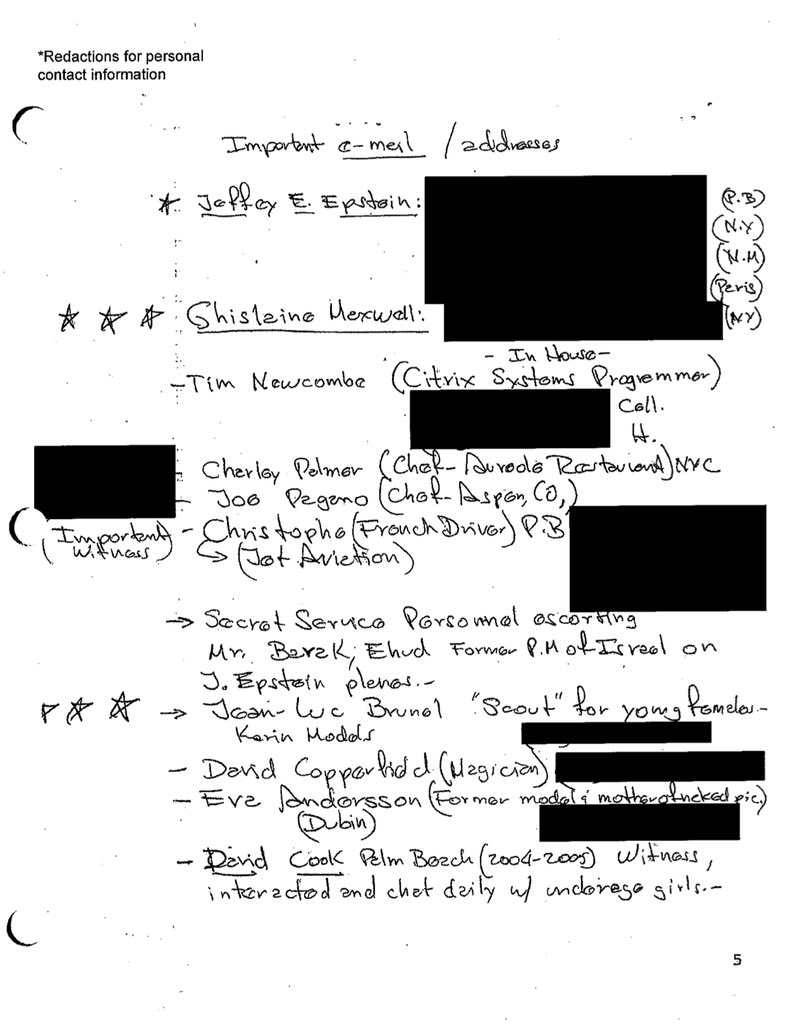 *Redactions for personal
contact information
Important e-mail / addresses
Jeffey E. Epstein:
(P.B)
(N.Y)
(N.M)
(Paris)
Ghislaine Maxwell:
(NY)
- In House -
- Tim Newcombe (Citrix Systems Programmer)
Cell.
H.
- Charley Palmer (Chef- Aureole Restaurant) NYC
- Joe Pagano (Chef-Aspen, CO,)
(Important Witness) - Christophe (French Driver) P.B
↳ (Jet Aviation)
→ Secret Service Personnel escorting
Mr. Barak, Ehud Former P.M of Israel on
J. Epstein planes.-
→ Jean-Luc Brunel "Scout" for young females.-
Karin Models
- David Copperfield (Magician)
- Eva Andersson (Former model & mother of naked pic.)
(Dubin)
- David Cook Palm Beach (2004-2005) Witness,
interacted and chat daily w/ underage girls.-
5